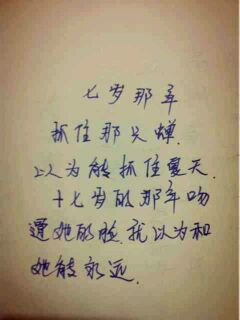 七岁那年
抓住那只蝉.
以为能抓住夏天.
十七岁的那年吻
过她的脸.就以为和
她能永远.